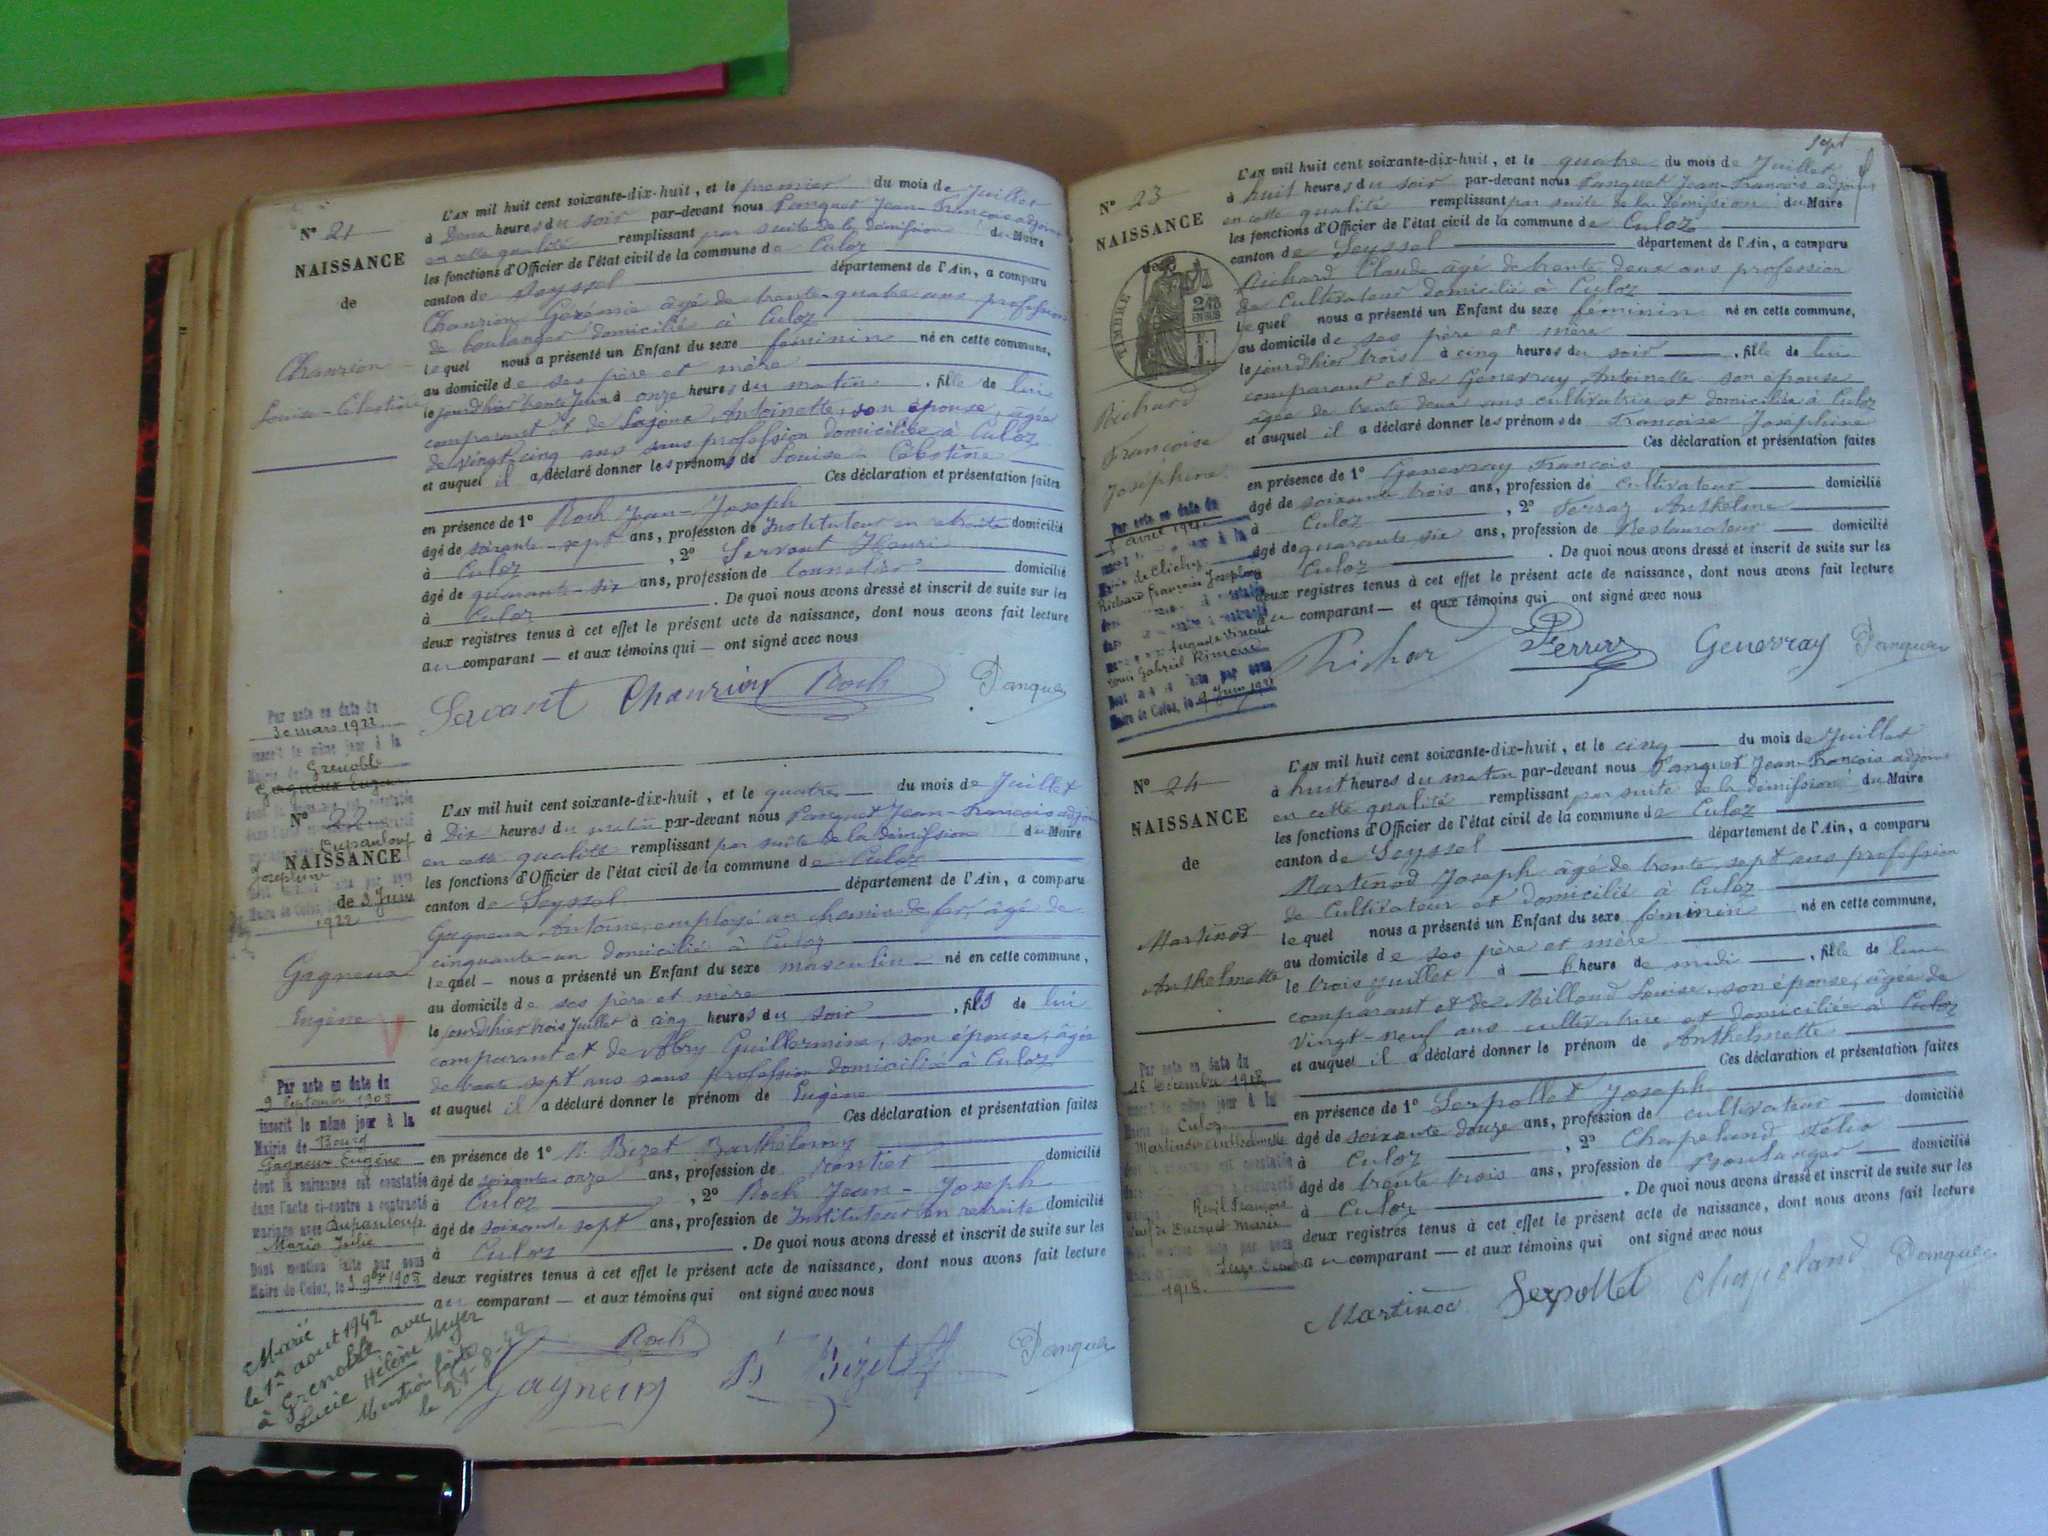 N° 21
NAISSANCE
de
Chanrion
Louise-Célestine
L'AN mil huit cent soixante-dix-huit, et le premier du mois de Juillet
à Deux heures du soir par-devant nous Panguet Jean-François adjoint
en cette qualité remplissant par suite de la démission du Maire
les fonctions d'Officier de l'état civil de la commune de Culoz
canton de Seyssel département de l'Ain, a comparu
Chanrion âgé de trente-quatre ans profession
de boulanger domicilié à Culoz
lequel nous a présenté un Enfant du sexe féminin né en cette commune,
au domicile de ses père et mère
le jourd'hier trente Juin à onze heures du matin, fille de lui
comparant et de Lajoux Antoinette, son épouse, âgée
de vingt-cinq ans sans profession domiciliée à Culoz
et auquel il a déclaré donner les prénoms de Louise-Célestine
Ces déclaration et présentation faites
en présence de 1° Roch Jean-Joseph
âgé de soixante-sept ans, profession de Instituteur en retraite domicilié
à Culoz, 2° Servant Henri
âgé de quarante-six ans, profession de domicilié
à Culoz. De quoi nous avons dressé et inscrit de suite sur les
deux registres tenus à cet effet le présent acte de naissance, dont nous avons fait lecture
au comparant — et aux témoins qui — ont signé avec nous
Servant Chanrion Roch Panguet
Par acte en date du
30 mars 1922
inscrit le même jour à la
Mairie de Grenoble
Gagneux Eugène
Dupanloup
Joséphine
Maire de Culoz, le 3 Juin
1922
N° 22
NAISSANCE
de
Gagneux
Eugène
Par acte en date du
9 Septembre 1905
inscrit le même jour à la
Mairie de Bourg
Gagneux Eugène
dont la naissance est constatée
dans l'acte ci-contre a contracté
mariage avec Dupanloup
Marie Julie
Dont mention faite par nous
Maire de Culoz, le 3 9bre 1905
Marié
le 1er aout 1942
à Grenoble avec
Lucie Hélène Meyer
Mention faite
le 29-8-42
L'AN mil huit cent soixante-dix-huit, et le quatre du mois de Juillet
à Dix heures du matin par-devant nous Panguet Jean-François adjoint
en cette qualité remplissant par suite de la démission du Maire
les fonctions d'Officier de l'état civil de la commune de Culoz
canton de Seyssel département de l'Ain, a comparu
Gagneux Antoine, employé au chemin de fer, âgé de
cinquante-un domicilié à Culoz
lequel — nous a présenté un Enfant du sexe masculin né en cette commune,
au domicile de ses père et mère
le jourd'hier trois Juillet à cinq heures du soir, fils de lui
comparant et de Abry Guillermine, son épouse, âgée
de trente sept ans sans profession domiciliée à Culoz
et auquel il a déclaré donner le prénom de Eugène
Ces déclaration et présentation faites
en présence de 1° Bizet Barthélemy
âgé de soixante onze ans, profession de rentier domicilié
à Culoz, 2° Roch Jean-Joseph
âgé de soixante sept ans, profession de Instituteur en retraite domicilié
à Culoz. De quoi nous avons dressé et inscrit de suite sur les
deux registres tenus à cet effet le présent acte de naissance, dont nous avons fait lecture
au comparant — et aux témoins qui ont signé avec nous
Roch
Gagneux Bizet Panguet
sept
N° 23
NAISSANCE
TIMBRE
Richard
Françoise
Joséphine
Par acte en date du
avril
Mairie de Clichy
Richard Françoise Joséphine
Louis Gabriel
Maire de Culoz, le 9 Juin
L'AN mil huit cent soixante-dix-huit, et le quatre du mois de Juillet
à huit heures du soir par-devant nous Panguet Jean-François adjoint
en cette qualité remplissant par suite de la démission du Maire
les fonctions d'Officier de l'état civil de la commune de Culoz
canton de Seyssel département de l'Ain, a comparu
Richard Claude âgé de trente deux ans profession
de Cultivateur domicilié à Culoz
lequel nous a présenté un Enfant du sexe féminin né en cette commune,
au domicile de ses père et mère
le jourd'hier trois à cinq heures du soir, fille de lui
comparant et de Genevray Antoinette son épouse
âgée de trente deux ans cultivatrice et domiciliée à Culoz
et auquel il a déclaré donner les prénoms de Françoise Joséphine
Ces déclaration et présentation faites
en présence de 1° Genevray François
âgé de soixante trois ans, profession de Cultivateur domicilié
à Culoz, 2° Anthelme
âgé de quarante six ans, profession de Restaurateur domicilié
Culoz. De quoi nous avons dressé et inscrit de suite sur les
deux registres tenus à cet effet le présent acte de naissance, dont nous avons fait lecture
au comparant — et aux témoins qui ont signé avec nous
Richar Genevray Panguet
N° 24
NAISSANCE
de
Martinod
Anthelmette
Par acte en date du
16 Décembre 1918
inscrit le même jour à la
Mairie de Culoz
Martinod Anthelmette
François
Marie
1918.
L'AN mil huit cent soixante-dix-huit, et le cinq du mois de Juillet
à huit heures du matin par-devant nous Panguet Jean-François adjoint
en cette qualité remplissant par suite de la démission du Maire
les fonctions d'Officier de l'état civil de la commune de Culoz
canton de Seyssel département de l'Ain, a comparu
Martinod Joseph âgé de trente sept ans profession
de Cultivateur et domicilié à Culoz
lequel nous a présenté un Enfant du sexe féminin né en cette commune,
au domicile de ses père et mère
le trois juillet à heure de midi, fille de lui
comparant et de Milloud Louise, son épouse, âgée de
vingt-neuf ans cultivatrice et domiciliée à Culoz
et auquel il a déclaré donner le prénom de Anthelmette
Ces déclaration et présentation faites
en présence de 1° Serpollet Joseph
âgé de soixante douze ans, profession de cultivateur domicilié
à Culoz, 2° Chapeland
âgé de trente trois ans, profession de Boulanger domicilié
à Culoz. De quoi nous avons dressé et inscrit de suite sur les
deux registres tenus à cet effet le présent acte de naissance, dont nous avons fait lecture
au comparant — et aux témoins qui ont signé avec nous
Martinod Serpollet Chapeland Panguet